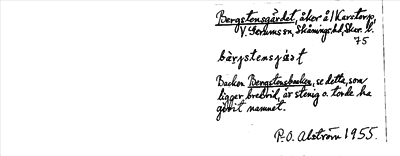 Bergstensgärdet, åker å/Karstorp,
V. Gerums sn, Skånings hd, Skar. l.
75
bärgstensjäst
Backen Bergstensbacken, se detta, som
ligger bredvid, är stenig o. torde ha
gett namnet.
P.-O. Alström 1955.